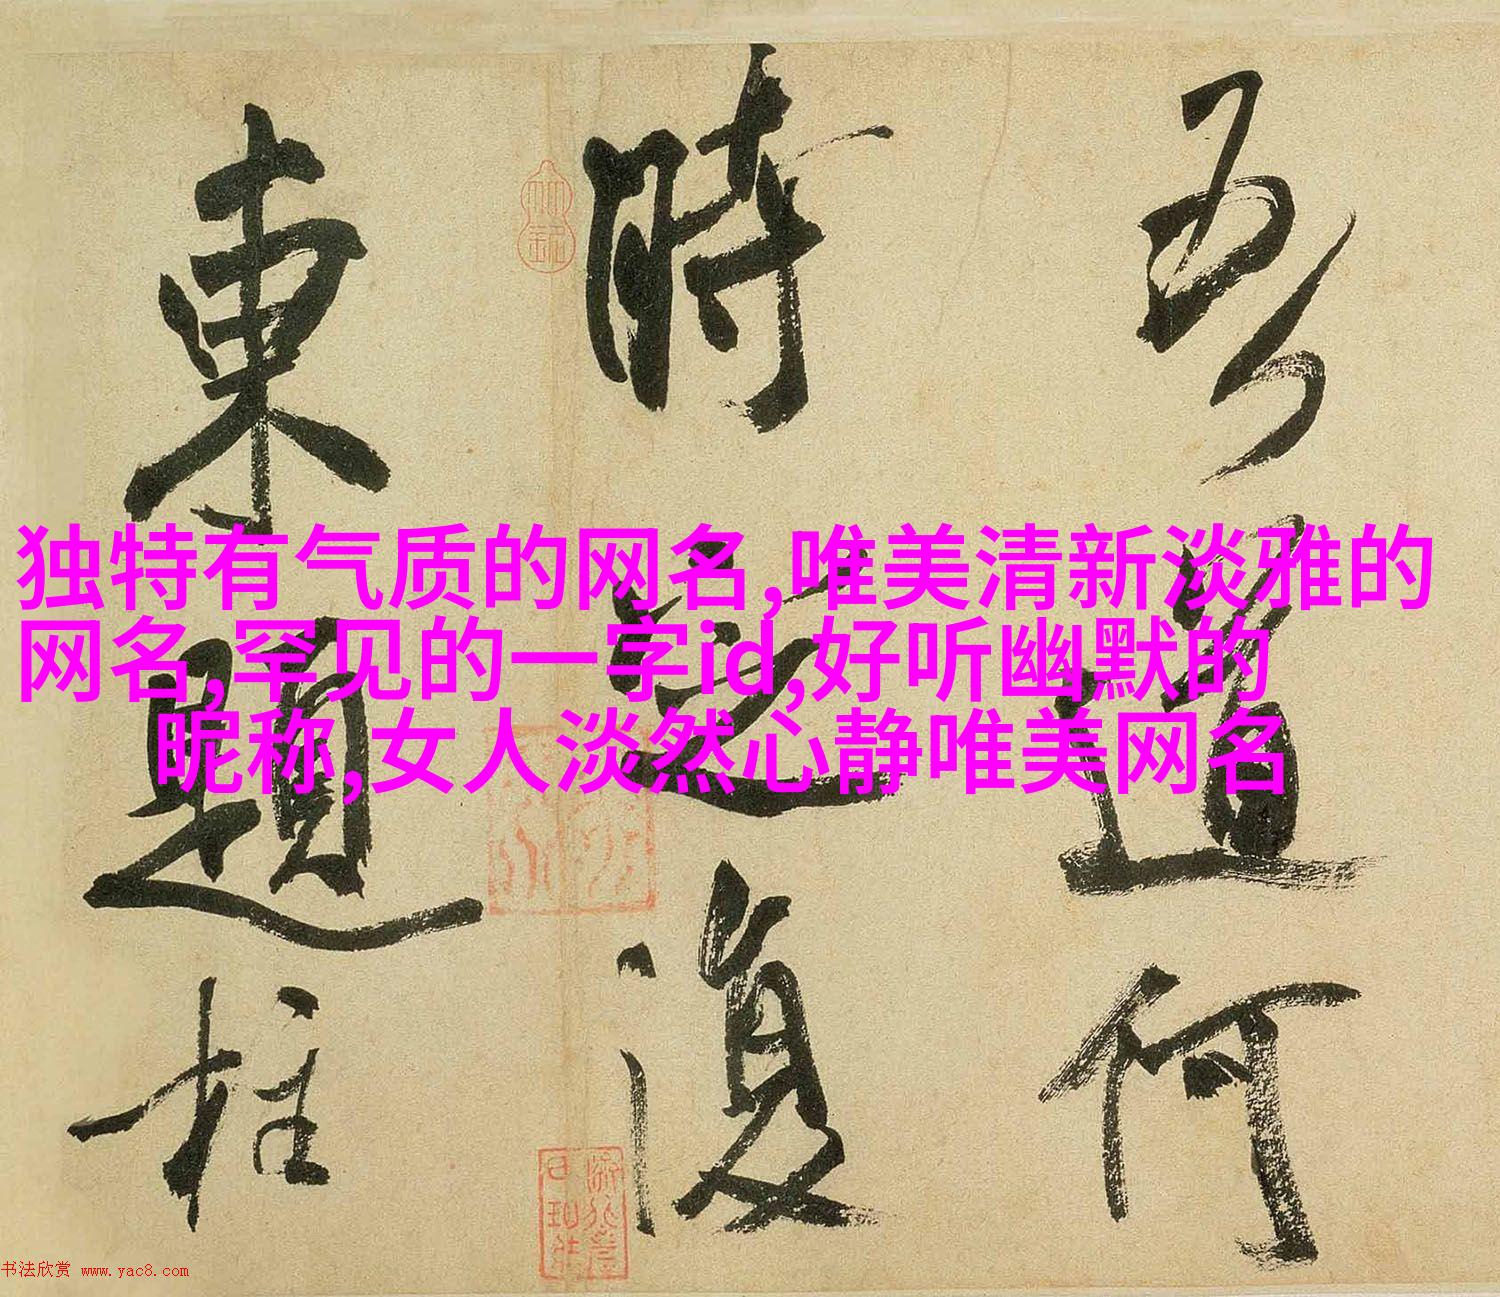 吾道何
時之復
東題柱
独特有气质的网名,唯美清新淡雅的
网名,罕见的一字id,好听幽默的
昵称,女人淡然心静唯美网名
书法欣赏 www.yac8.com